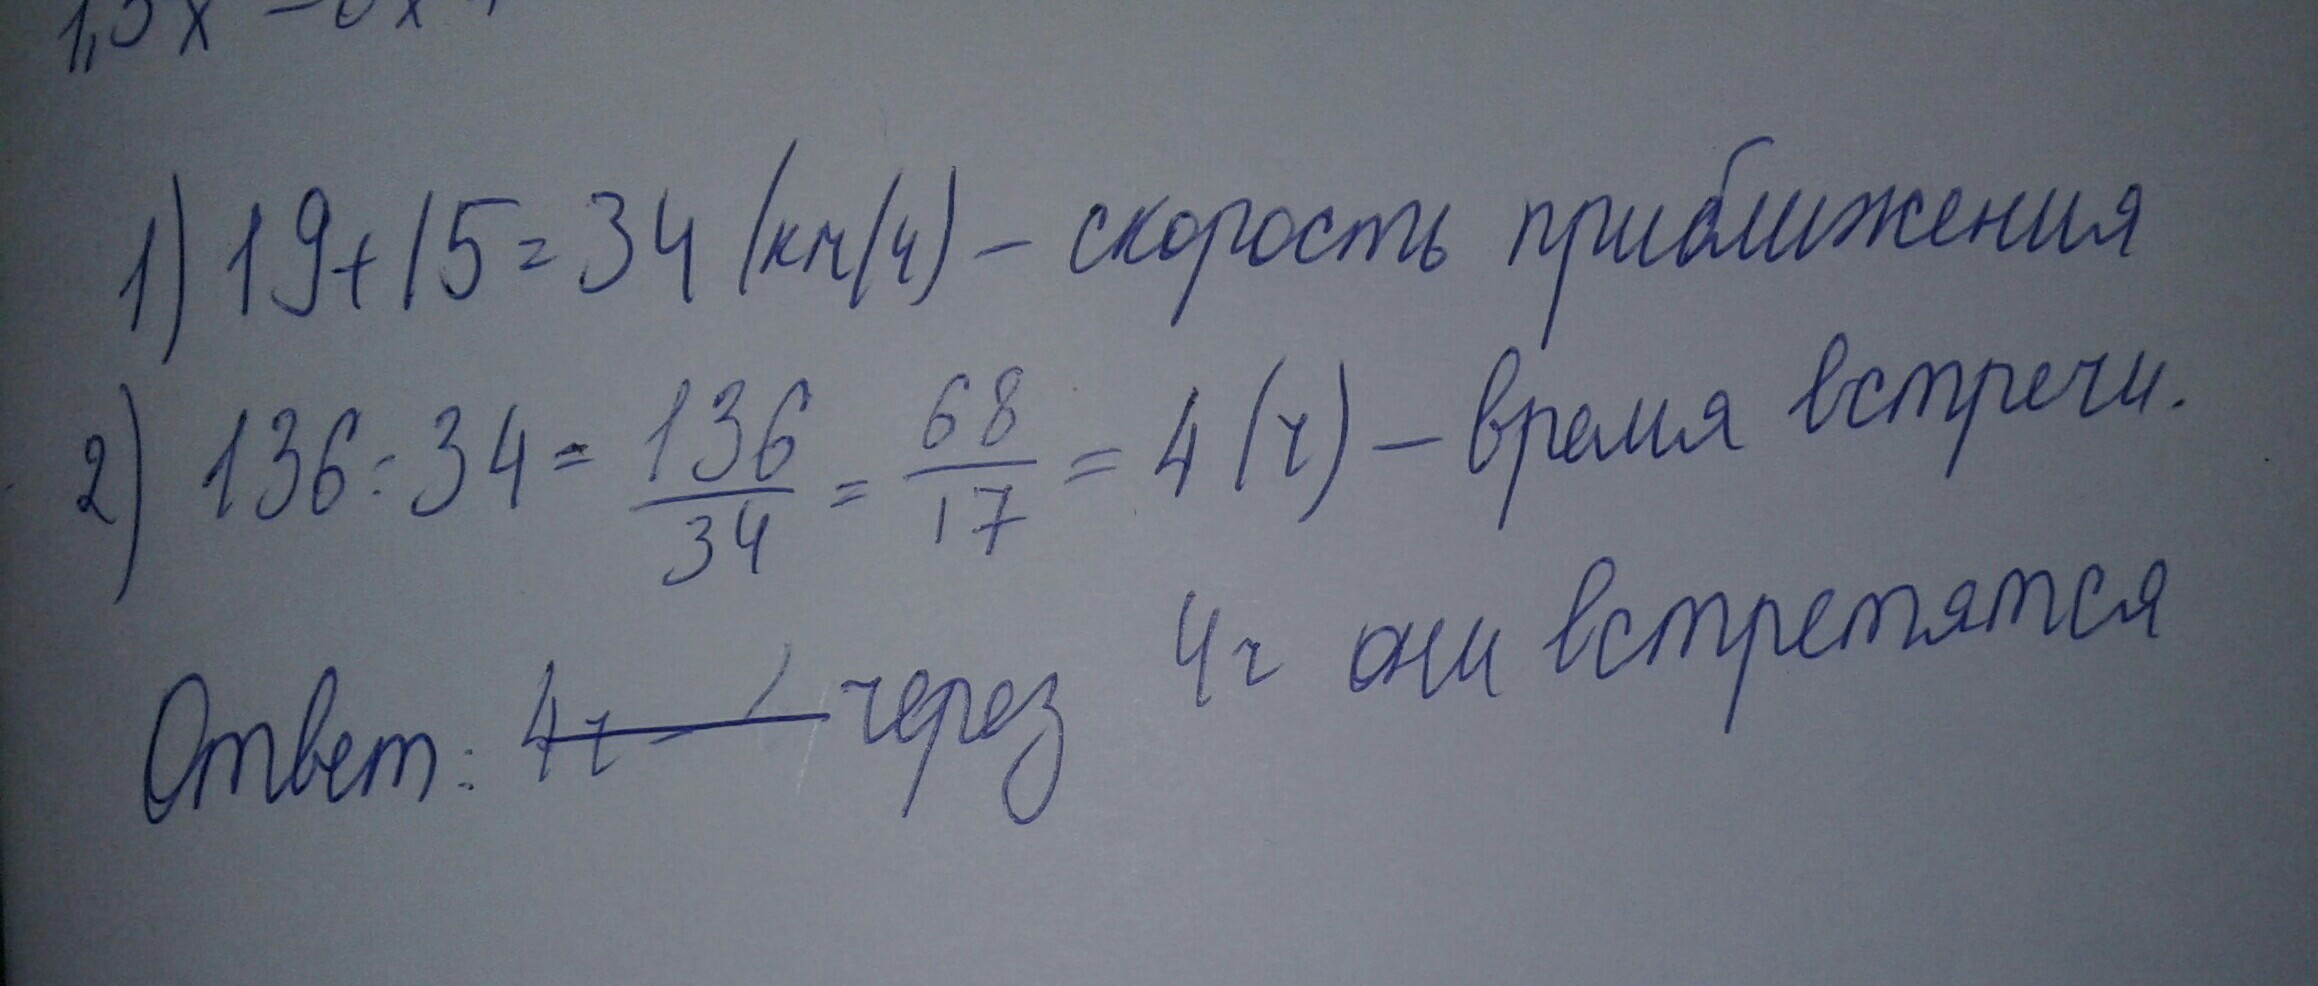 1) 19+15=34 (км/ч) – скорость приближения
2) 136:34 = 136/34 = 68/17 = 4 (ч) – время встречи.
Ответ: через 4ч они встретятся